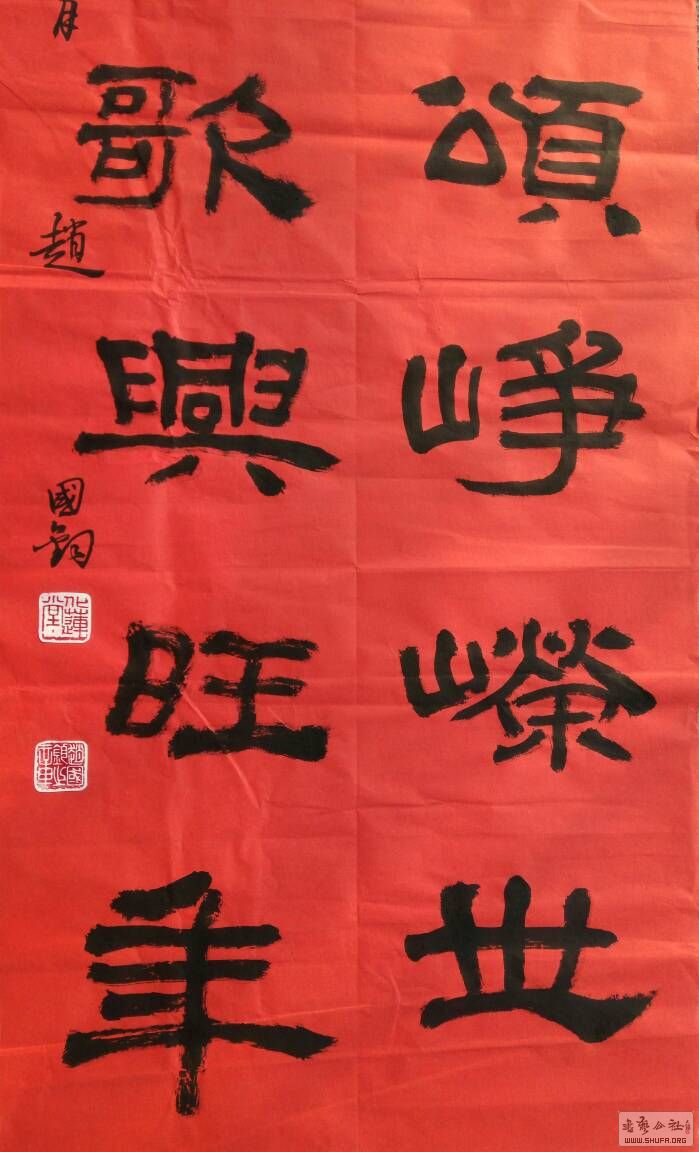 頌崢嶸世
歌興旺年
月 趙國鈞
蓮堂
WWW.SHUFA.ORG